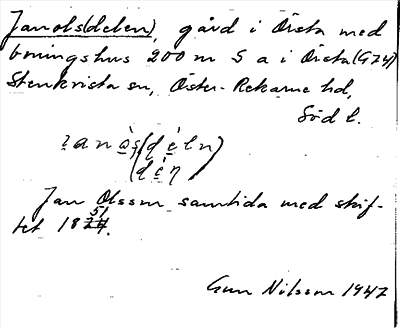 Janols(delen), gård i Örsta med
boningshus 200 m S a i Örsta (G24)
Stenkvista sn, Öster-Rekarne hd,
Söd l.
ɿanòs(dèln)
(dèn)
Jan Olsson samtida med skif-
tet 1851.
Gun Nilsson 1947